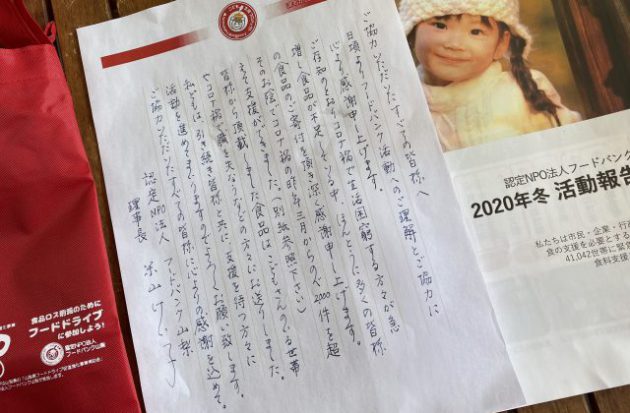 ご協力いただいたすべての皆様へ
日頃よりフードバンク活動へのご理解とご協力に
心より感謝申し上げます。
ご存知のとおりコロナ禍で生活困窮する方々が急
増し食品が不足している中、ほんとうに多くの皆様
の食品のご寄付を頂き深く感謝申し上げます。
そのお陰でコロナ禍の昨年三月からのべ2000件を超
える支援ができました。(別紙参照下さい)
皆様から頂戴しました食品はこどもさんのいる世帯
やコロナ禍で職を失うなどの方々にお送りしました。
私どもは、引き続き皆様と共に支援を待つ方々に
活動を進めてまいりますのでよろしくお願い致します。
ご協力いただいたすべての皆様に心よりの感謝を込めて。
認定NPO法人 フードバンク山梨
理事長 米山けい子
認定NPO法人フードバンク
2020年冬 活動報告
私たちは市民・企業・行政
食の支援を必要とする
41,042世帯に緊急
食料支援
食品ロス削減のために
フードドライブ
に参加しよう!
認定NPO法人
フードバンク山梨